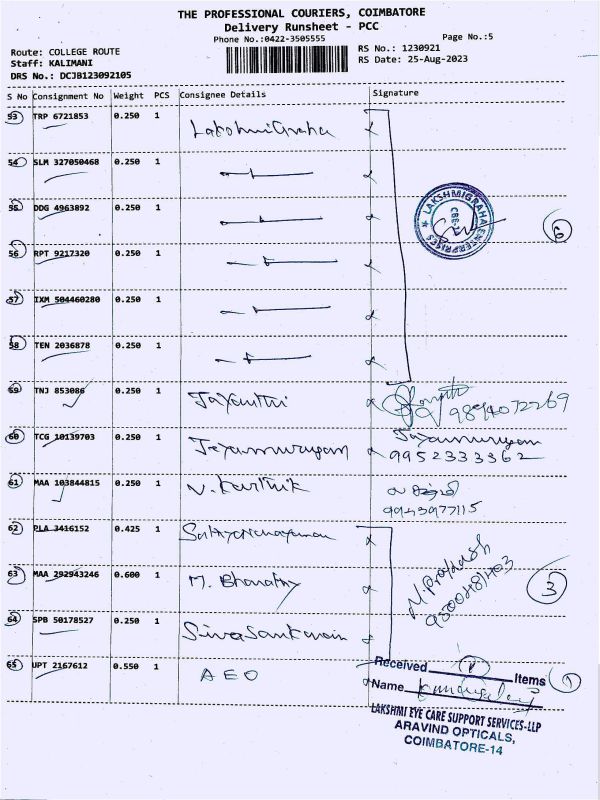 THE PROFESSIONAL COURIERS, COIMBATORE
Delivery Runsheet - PCC
Phone No.:0422-3505555
Page No.:5
Route: COLLEGE ROUTE
Staff: KALIMANI
DRS No.: DCJB123092105
RS No.: 1230921
RS Date: 25-Aug-2023
S No Consignment No Weight PCS Consignee Details Signature
53 TRP 6721853 0.250 1 LakshmiGraha
54 SLM 327050468 0.250 1
55 DDG 4963892 0.250 1
LAKSHMIGRAHA ENTERPRISES
6
56 RPT 9217320 0.250 1
57 IXM 504460280 0.250 1
58 TEN 2036878 0.250 1
59 TNJ 853086 0.250 1 Jayanthi
9894072269
60 TCG 10139703 0.250 1 Jayamurugan Jayamurugan
9952333362
61 MAA 103844815 0.250 1 N. Karthik
9943977115
62 PLA 3416152 0.425 1 Sathyanarayanan
63 MAA 292943246 0.600 1 M. Bharathy
M. Prakash
3
64 SPB 50178527 0.250 1 Sivasankarain
65 UPT 2167612 0.550 1 AEO
Received 1 Items 1
Name
LAKSHMI EYE CARE SUPPORT SERVICES-LLP
ARAVIND OPTICALS,
COIMBATORE-14